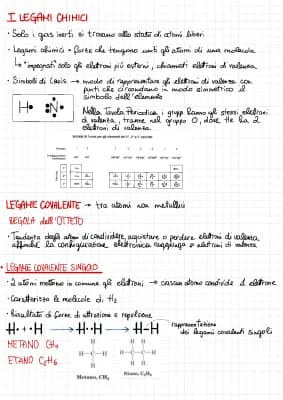 I LEGAMI CHIMICI
• Solo i gas inerti si trovano allo stato di atomi liberi
• Legami chimici = forze che tengono uniti gli atomi di una molecola
↳ impegnati solo gli elettroni più esterni, chiamati elettroni di valenza
• Simboli di Lewis → modo di rappresentare gli elettroni di valenza con
punti che circondano in modo simmetrico il
simbolo dell'elemento
H• •N•
Nella Tavola Periodica, i gruppi hanno gli stessi elettroni
di valenza, tranne nel gruppo 0, dove He ha 2
elettroni di valenza
LEGAME COVALENTE → tra atomi non metallici
REGOLA dell'OTTETO
• Tendenza degli atomi di condividere, acquistare o perdere elettroni di valenza
affinché la configurazione elettronica raggiunga 8 elettroni di valenza
• LEGAME COVALENTE SINGOLO
• 2 atomi mettono in comune gli elettroni → ciascun atomo condivide 1 elettrone
• Caratterizza le molecole di H₂
• Risultato di forze di attrazione e repulsione
H• + •H → H••H → H–H
rappresentazione
dei legami covalenti singoli
METANO CH₄
ETANO C₂H₆
H
H–C–H
H
H H
H–C–C–H
H H
Metano, CH₄
Etano, C₂H₆